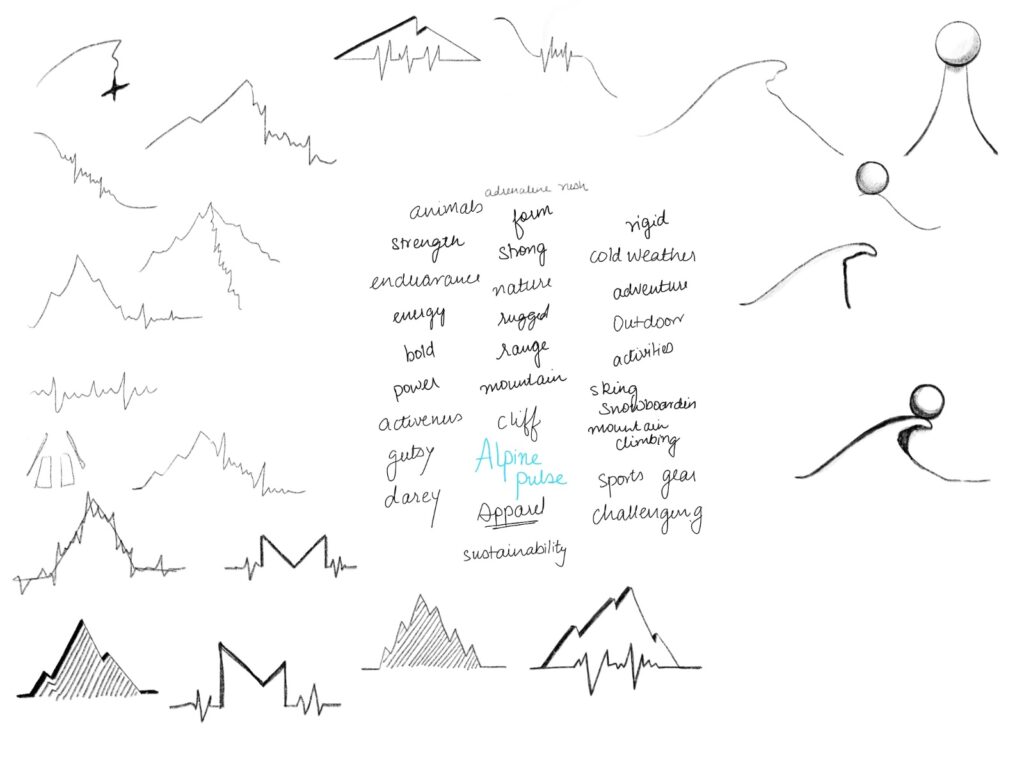 adrenaline rush
animals
form
rigid
strength
strong
cold weather
enduarance
nature
adventure
energy
rugged
Outdoor
bold
range
activities
power
mountain
skiing
snowboardin
activenus
cliff
mountain
climbing
gutsy
Alpine
pulse
sports gear
darey
Apparel
challenging
sustainability